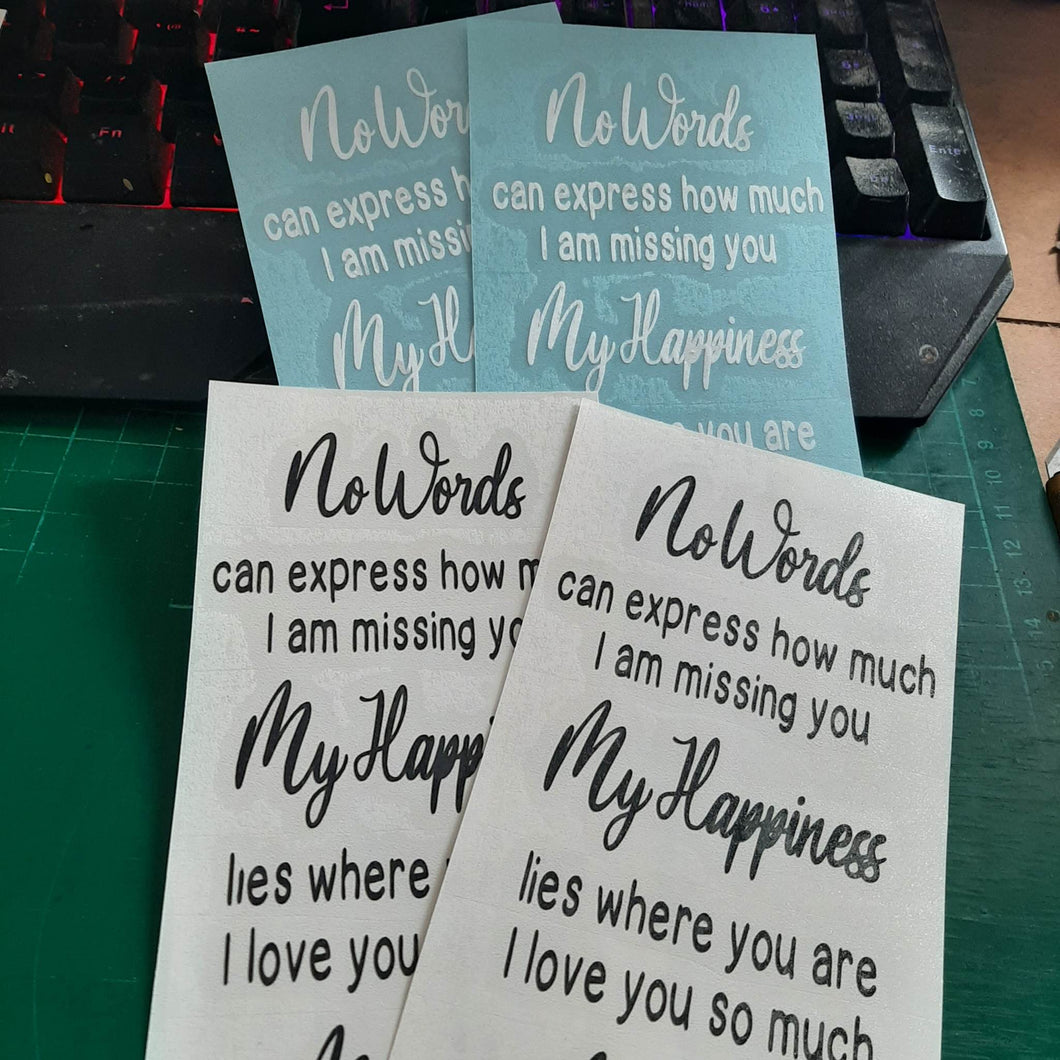 No Wor
can express h
I am missi
My H
No Words
can express how much
I am missing you
My Happiness
you are
No Words
can express how m
I am missing yo
My Happ
lies where
I love you
No Words
can express how much
I am missing you
My Happiness
lies where you are
I love you so much
Fn
Enter
7
8
9
10
11
12
13
14